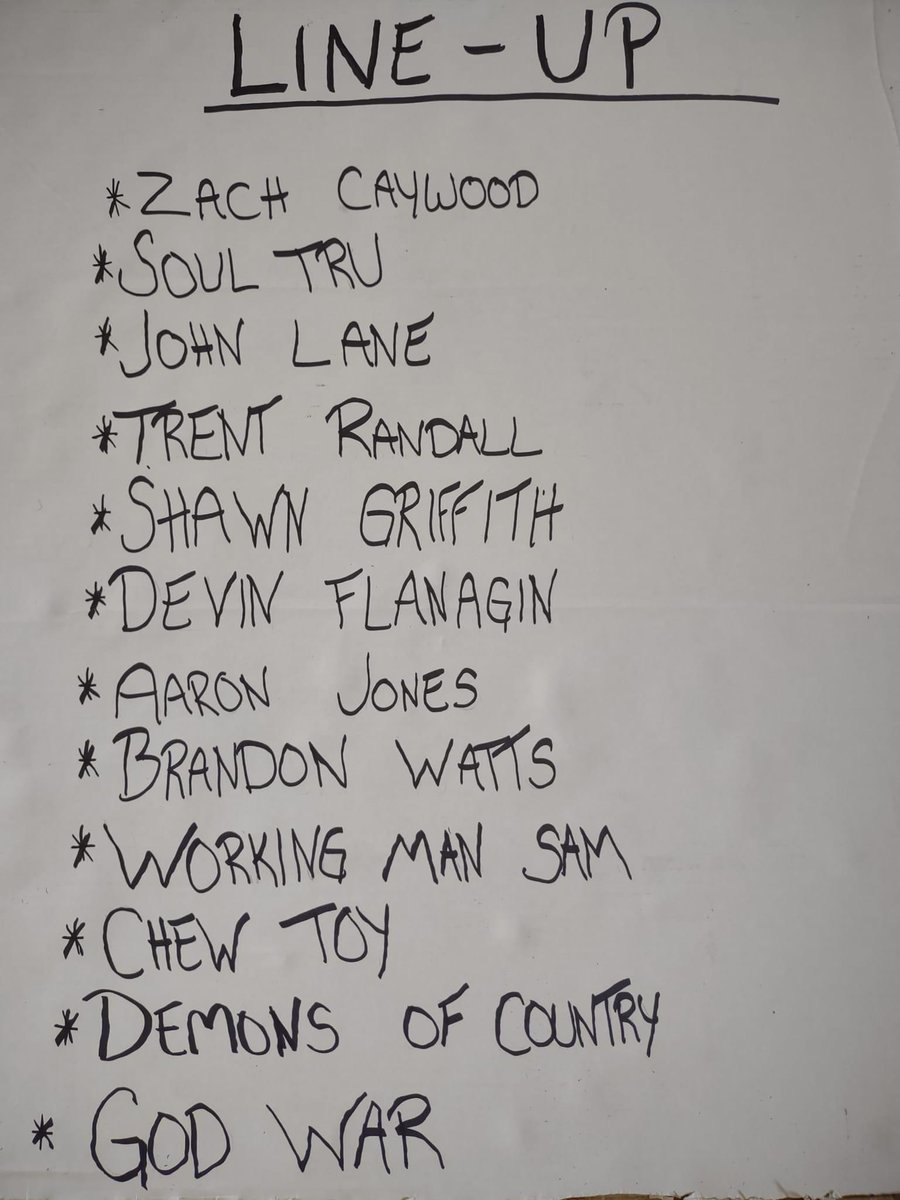 LINE-UP
*ZACH CAYWOOD
*SOUL TRU
*JOHN LANE
*TRENT RANDALL
*SHAWN GRIFFITH
*DEVIN FLANAGIN
*AARON JONES
*BRANDON WATTS
*WORKING MAN SAM
*CHEW TOY
*DEMONS OF COUNTRY
*GOD WAR